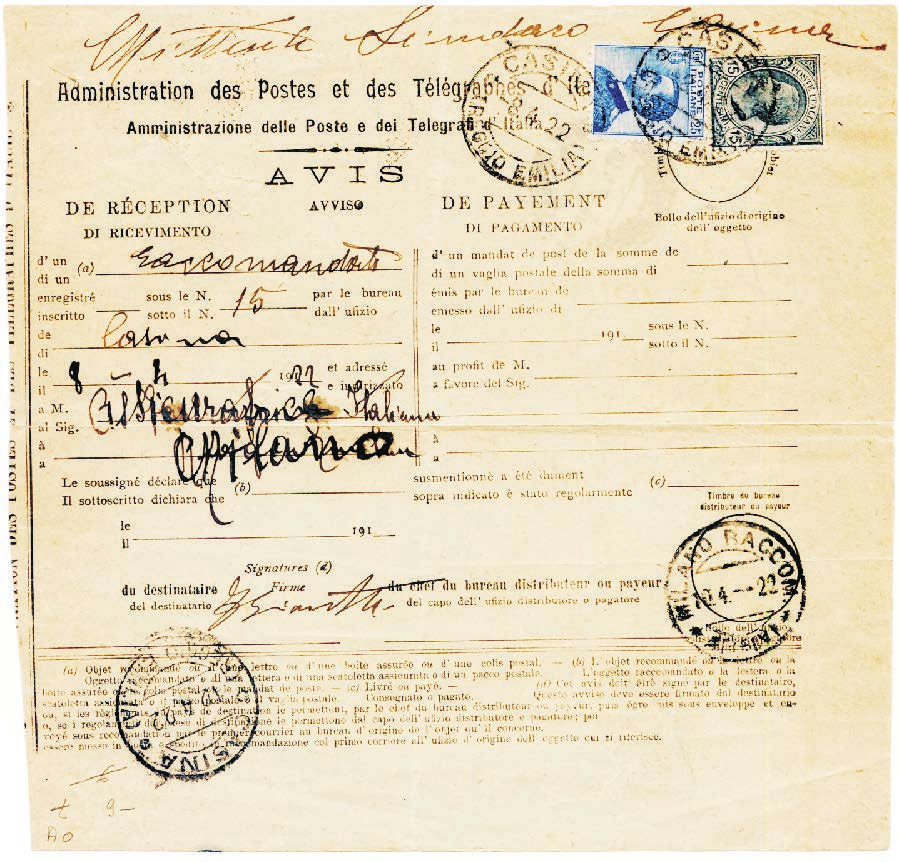 Mittente Sindaco
Administration des Postes et des Télégraphes d'Ita
Amministrazione delle Poste e dei Telegrafi d'Italia
CASI
8.4.22
REGGIO EMILIA
POSTE ITALIANE
15
15
AVIS
DE RÉCEPTION
AVVISO
DE PAYEMENT
DI RICEVIMENTO
DI PAGAMENTO
Bollo dell'ufizio di origine
dell' oggetto
d'un (a) Raccomandata
di un
enregistré sous le N. 15 par le bureau
inscritto sotto il N. dall' ufizio
de Casina
di
le 8 - 4 1922 et adressé
il e indirizzato
a M. Assicuratrice Italiana
al Sig.
à Milano
a
d' un mandat de post de la somme de
di un vaglia postale della somma di
émis par le bureau de
emesso dall' ufizio di
le 191 sous le N.
il sotto il N.
au profit de M.
a favore del Sig.
à
a
Le soussigné déclare que (b) susmentionné a été dument (c)
Il sottoscritto dichiara che sopra indicato è stato regolarmente
Timbre du bureau
distributeur ou payeur
le 191
il
Signatures (d)
Firme
du destinataire
del destinatario
du chef du bureau distributeur ou payeur
del capo dell' ufizio distributore o pagatore
MILANO RACCOM
4.-22
Bollo dell'
(a) Objet recommandé ou d'une lettre ou d'une boite assurée ou d'une colis postal. — (b) L' objet recommandé ou la lettre ou la
Oggetto raccomandato o di una lettera o di una scatoletta assicurata o di un pacco postale. L'oggetto raccomandato o la lettera o la
boite assurée ou le colis postal ou le mandat de poste. — (c) Livré ou payé. — (d) Cet avis doit être signé par le destinataire,
scatoletta assicurata o il pacco postale o il vaglia postale. Consegnato o pagato. Questo avviso deve essere firmato dal destinatario
ou, si les règlements du pays de destination le permettent, par le chef du bureau distributeur ou payeur, puis
o, se i regolamenti del paese di destinazione lo permettono dal capo dell' ufizio distributore o pagatore; poi
voyé sous recommandation par le premier courrier au bureau d' origine de l'objet qu'il concerne.
essere mosso in raccomandazione col primo corriere all' ufizio d' origine dell' oggetto cui si riferisce.
CASINA
9-
AO